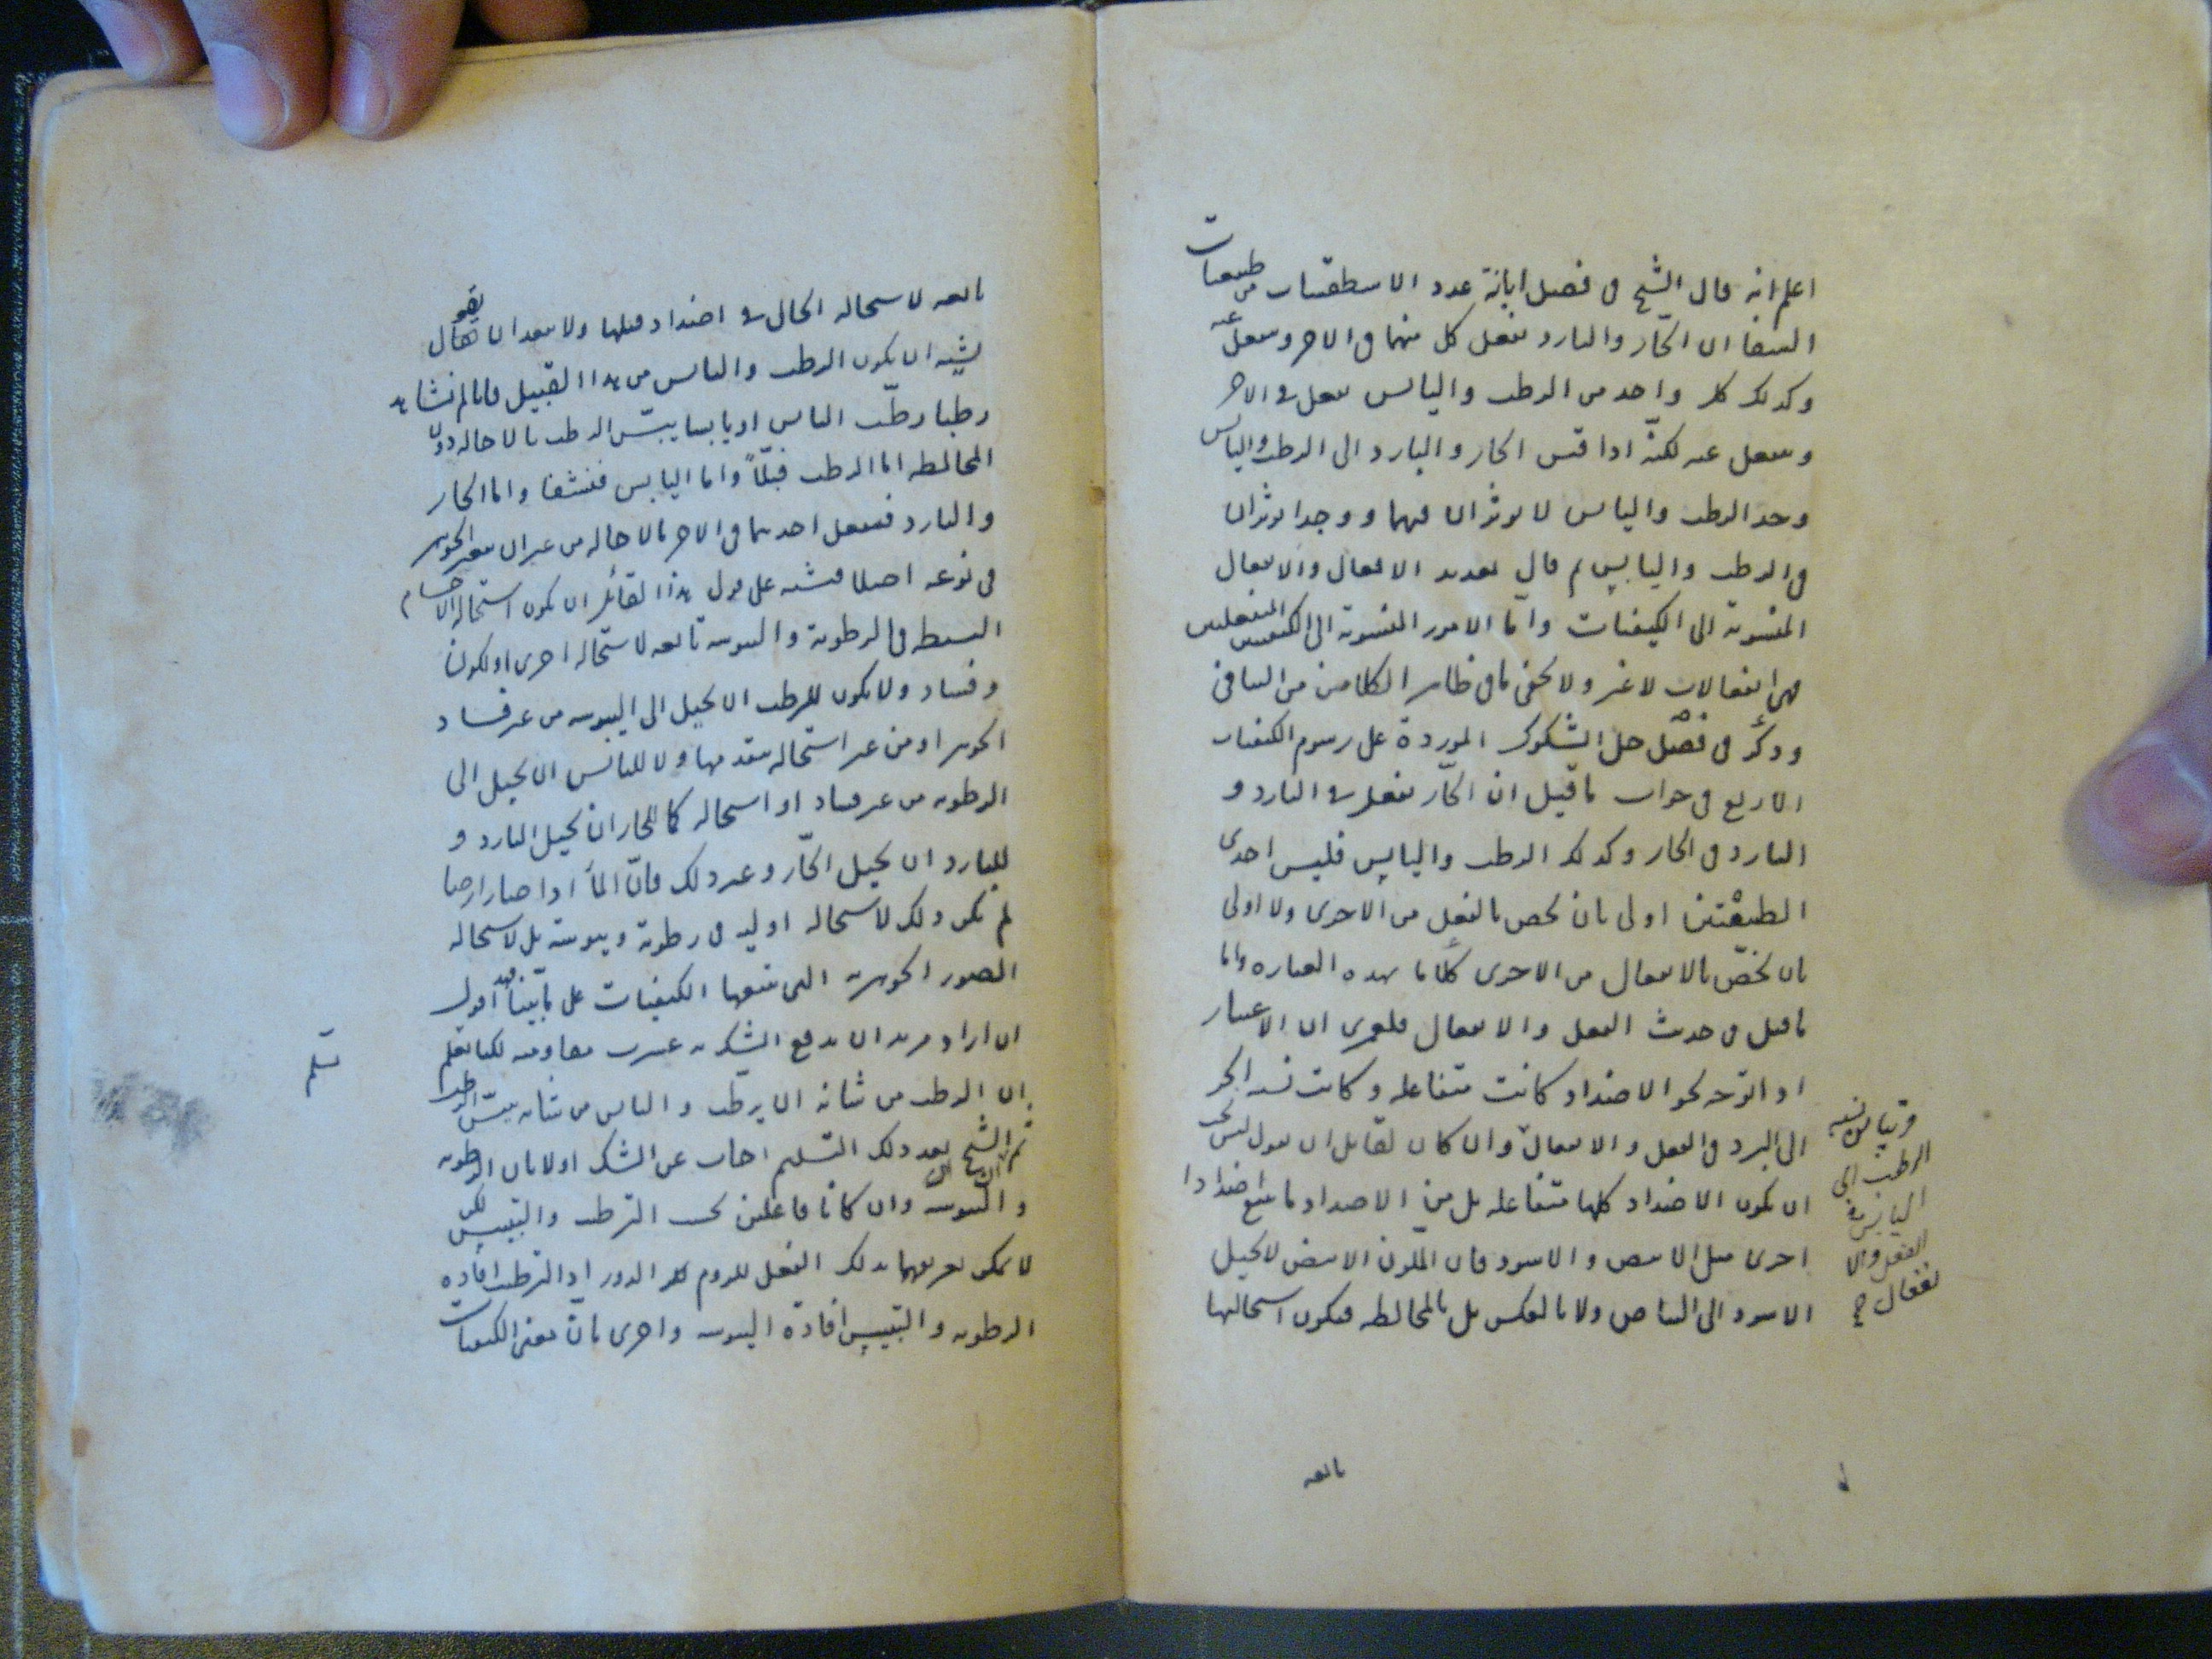 اعلم انه قال الشيخ فى فصل ابانة عدد الاسطقسات من طبيعيات
الشفا ان الحار والبارد يفعل كل منهما فى الاخر وينفعل عنه
وكذلك كل واحد من الرطب واليابس يفعل فى الاخر
وينفعل عنه لكنه اذا قيس الحار والبارد الى الرطب واليابس
وجد الرطب واليابس لا يوثران فيهما ووجدا يوثران
فى الرطب واليابس ثم قال بعد الافعال والانفعال
المنسوبة الى الكيفيات واما الامور المنسوبة الى الكيفيتين المنفعلتين
فهى انفعالات لا غير ولا يخفى ما فى ظاهر الكلامين من التنافى
وذكر فى فصل حل الشكوك الموردة على رسوم الكيفيات
الاربع فى جواب ما قيل ان الحار يفعل فى البارد و
البارد فى الحار وكذلك الرطب واليابس فليس احدى
الطبقتين اولى بان يخص بالفعل من الاخرى ولا اولى
بان يخص بالانفعال من الاخرى كلاما بهذه العبارة واما
ما قيل من حديث الفعل والانفعال فلعمرى ان الاعتبار
اذا توجه نحو الاضداد كانت متفاعلة وكانت نسبة الحر
الى البرد فى الفعل والانفعال وان كان لقائل ان يقول ليس يجب
ان يكون الاضداد كلها متفاعلة بل من الاضداد ما يتبع اضدادا
اخرى مثل الابيض والاسود فان الملون الابيض لا يحيل
الاسود الى البياض ولا بالعكس بل بالمخالطة فيكون استحالتها
قريبا من نسبة
الرطب الى
اليابس فى
الفعل والا
نفعال صح
تابعه
تابعة لاستحالة الحال فى اضداد قبلها ولا يبعد ان يقال
يشبه ان يكون الرطب واليابس من هذا القبيل فانا لم نشاهد
رطبا رطّب اليابس او يابسا يبّس الرطب بالاحالة دون
المخالطة اما الرطب فبلّاً واما اليابس فنشفا واما الحار
والبارد فيفعل احدهما فى الاخر بالاحالة من غير ان يتغير الجوهر
فى نوعه اصلا فيشبه على قول هذا القائل ان يكون استحالة الاجسام
البسيطة فى الرطوبة واليبوسة تابعة لاستحالة اخرى او لكون
وفساد ولا يكون للرطب ان يحيل الى اليبوسة من غير فساد
الجوهر او من غير استحالة يتقدمها ولا لليابس ان يحيل الى
الرطوبة من غير فساد او استحالة كما للحار ان يحيل البارد و
للبارد ان يحيل الحار وغير ذلك فان الماء اذا صار ارضا
لم يكن ذلك لاستحالة اولية فى رطوبة ويبوسة بل لاستحالة
الصور الجوهرية التى يتبعها الكيفيات على ما بيناه اقول
ان اراد مريد ان يدفع الشك به عسرت مقاومته لكنا نعلم
ان الرطب من شانه ان يرطب واليابس من شانه يبّس الرطب
ثم الشيخ بعد ذلك التسليم اجاب عن الشك اولا بان الرطوبة
واليبوسة وان كانا فاعلين بحسب الترطيب والتيبيس لكن
لا يمكن تعريفهما بذلك الفعل للزوم الدور اذ الترطيب افادة
الرطوبة والتيبيس افادة اليبوسة واخرى بان معنى الكيفيات
نسلم